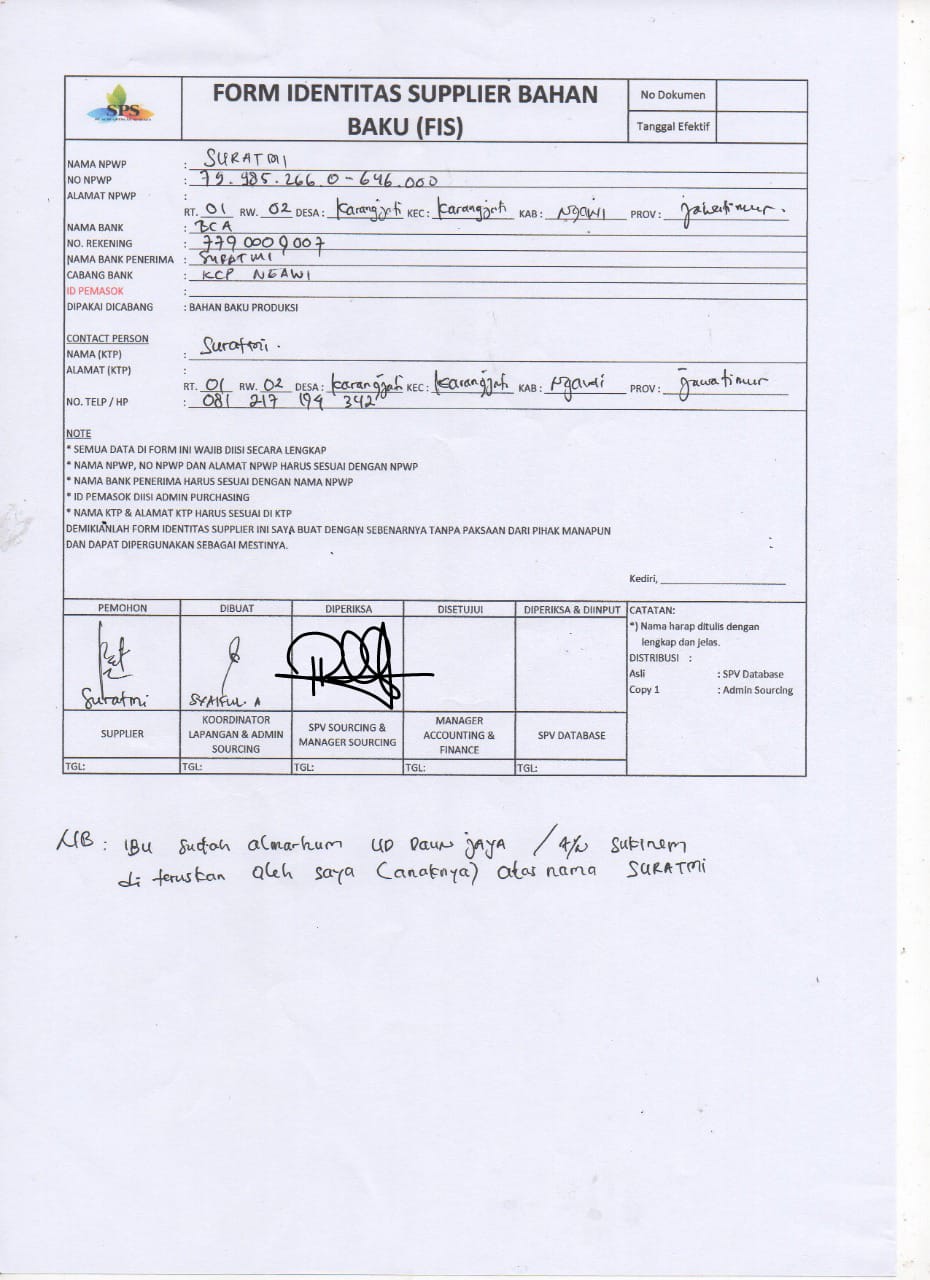 SPS
FORM IDENTITAS SUPPLIER BAHAN
BAKU (FIS)
No Dokumen
Tanggal Efektif
NAMA NPWP : SURATMI
NO NPWP : 79.985.266.0-646.000
ALAMAT NPWP :
RT. 01 RW. 02 DESA : Karangjati KEC : Karangjati KAB : Ngawi PROV : Jawa timur.
NAMA BANK : BCA
NO. REKENING : 779 000 9 007
NAMA BANK PENERIMA : SURATMI
CABANG BANK : KCP NGAWI
ID PEMASOK :
DIPAKAI DICABANG : BAHAN BAKU PRODUKSI
CONTACT PERSON
NAMA (KTP) : Suratmi.
ALAMAT (KTP) :
RT. 01 RW. 02 DESA : Karangjati KEC : Karangjati KAB : Ngawi PROV : Jawa timur
NO. TELP / HP : 081 217 194 342
NOTE
* SEMUA DATA DI FORM INI WAJIB DIISI SECARA LENGKAP
* NAMA NPWP, NO NPWP DAN ALAMAT NPWP HARUS SESUAI DENGAN NPWP
* NAMA BANK PENERIMA HARUS SESUAI DENGAN NAMA NPWP
* ID PEMASOK DIISI ADMIN PURCHASING
* NAMA KTP & ALAMAT KTP HARUS SESUAI DI KTP
DEMIKIANLAH FORM IDENTITAS SUPPLIER INI SAYA BUAT DENGAN SEBENARNYA TANPA PAKSAAN DARI PIHAK MANAPUN
DAN DAPAT DIPERGUNAKAN SEBAGAI MESTINYA.
Kediri,
PEMOHON DIBUAT DIPERIKSA DISETUJUI DIPERIKSA & DIINPUT
Suratmi SYAIFUL. A
SUPPLIER
KOORDINATOR
LAPANGAN & ADMIN
SOURCING
SPV SOURCING &
MANAGER SOURCING
MANAGER
ACCOUNTING &
FINANCE
SPV DATABASE
TGL: TGL: TGL: TGL: TGL:
CATATAN:
*) Nama harap ditulis dengan
lengkap dan jelas.
DISTRIBUSI :
Asli : SPV Database
Copy 1 : Admin Sourcing
NB : IBU sudah almarhum UD Daun jaya / A/N Sukinem
di teruskan oleh saya (anaknya) atas nama SURATMI